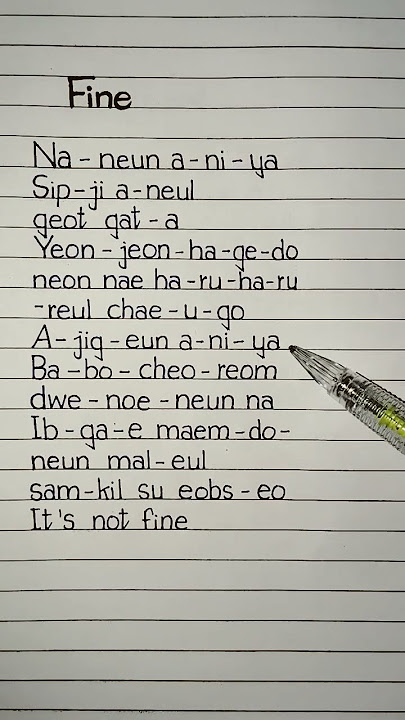 Fine
Na - neun a - ni - ya
Sip - ji a - neul
geot gat - a
Yeon - jeon - ha - ge - do
neon nae ha - ru - ha - ru
- reul chae - u - go
A - jig - eun a - ni - ya
Ba - bo - cheo - reom
dwe - noe - neun na
Ib - ga - e maem - do -
neun mal - eul
sam - kil su eobs - eo
It's not fine